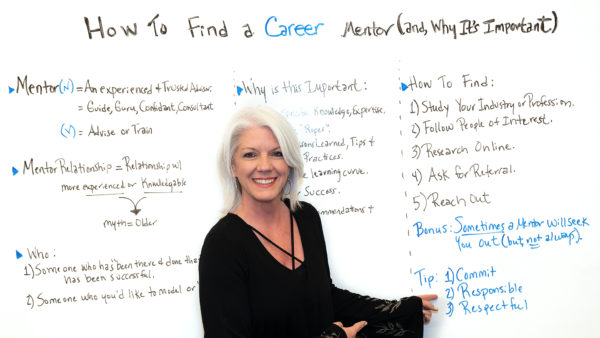 How To Find a Career Mentor (and, Why It's Important)
Mentor (N) = An experienced + Trusted Advisor.
= Guide, Guru, Confidant, Consultant
(V) = Advise or Train
Mentor Relationship = Relationship w/
more experienced or Knowledgable
myth = Older
Who:
1) Someone who has "been there & done that
has been successful.
2) Someone who you'd like to model or
Why is this Important:
Knowledge, Expertise.
"Ropes".
Learned, Tips &
Practices.
learning curve.
Success.
&
How To Find:
1) Study Your Industry or Profession.
2) Follow People of Interest.
3) Research Online.
4) Ask for Referral.
5) Reach Out
Bonus: Sometimes a Mentor will seek
You out (but, not always).
Tip: 1) Commit
2) Responsible
3) Respectful